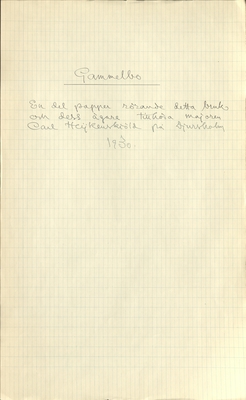 Gammelbo
En del papper rörande detta bruk
och dess ägare tillhöra majoren
Carl Heijkenskjöld på Djursholm
1930.